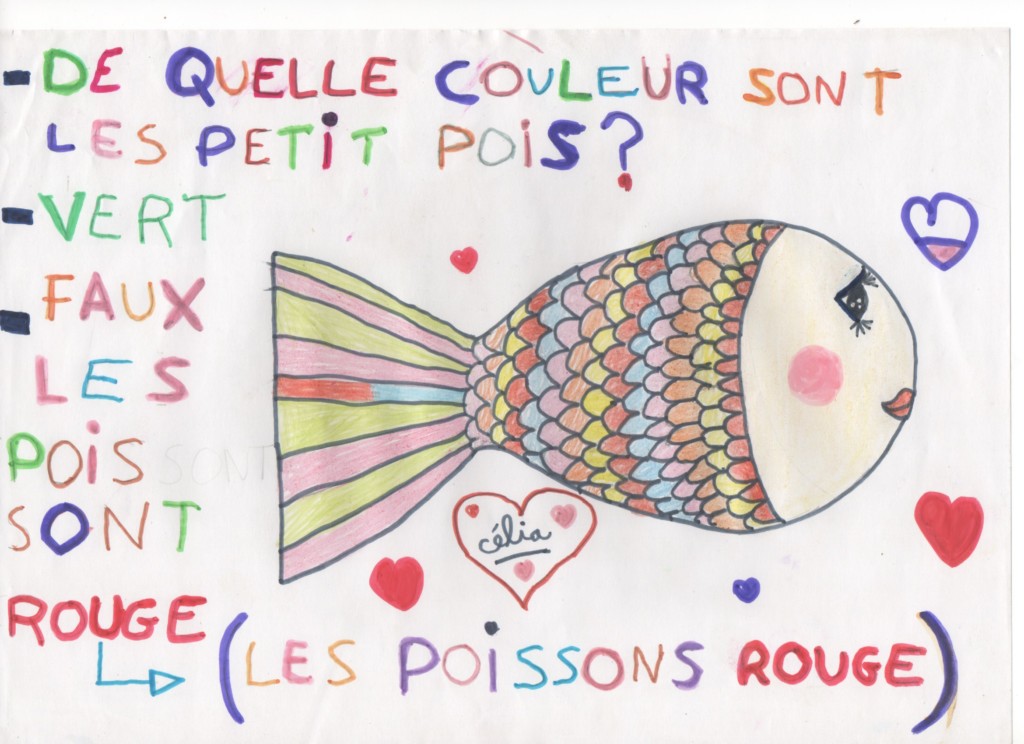 - DE QUELLE COULEUR SONT
LES PETIT POIS?
- VERT
- FAUX
LES
POIS SONT
SONT
ROUGE
(LES POISSONS ROUGE)
célia